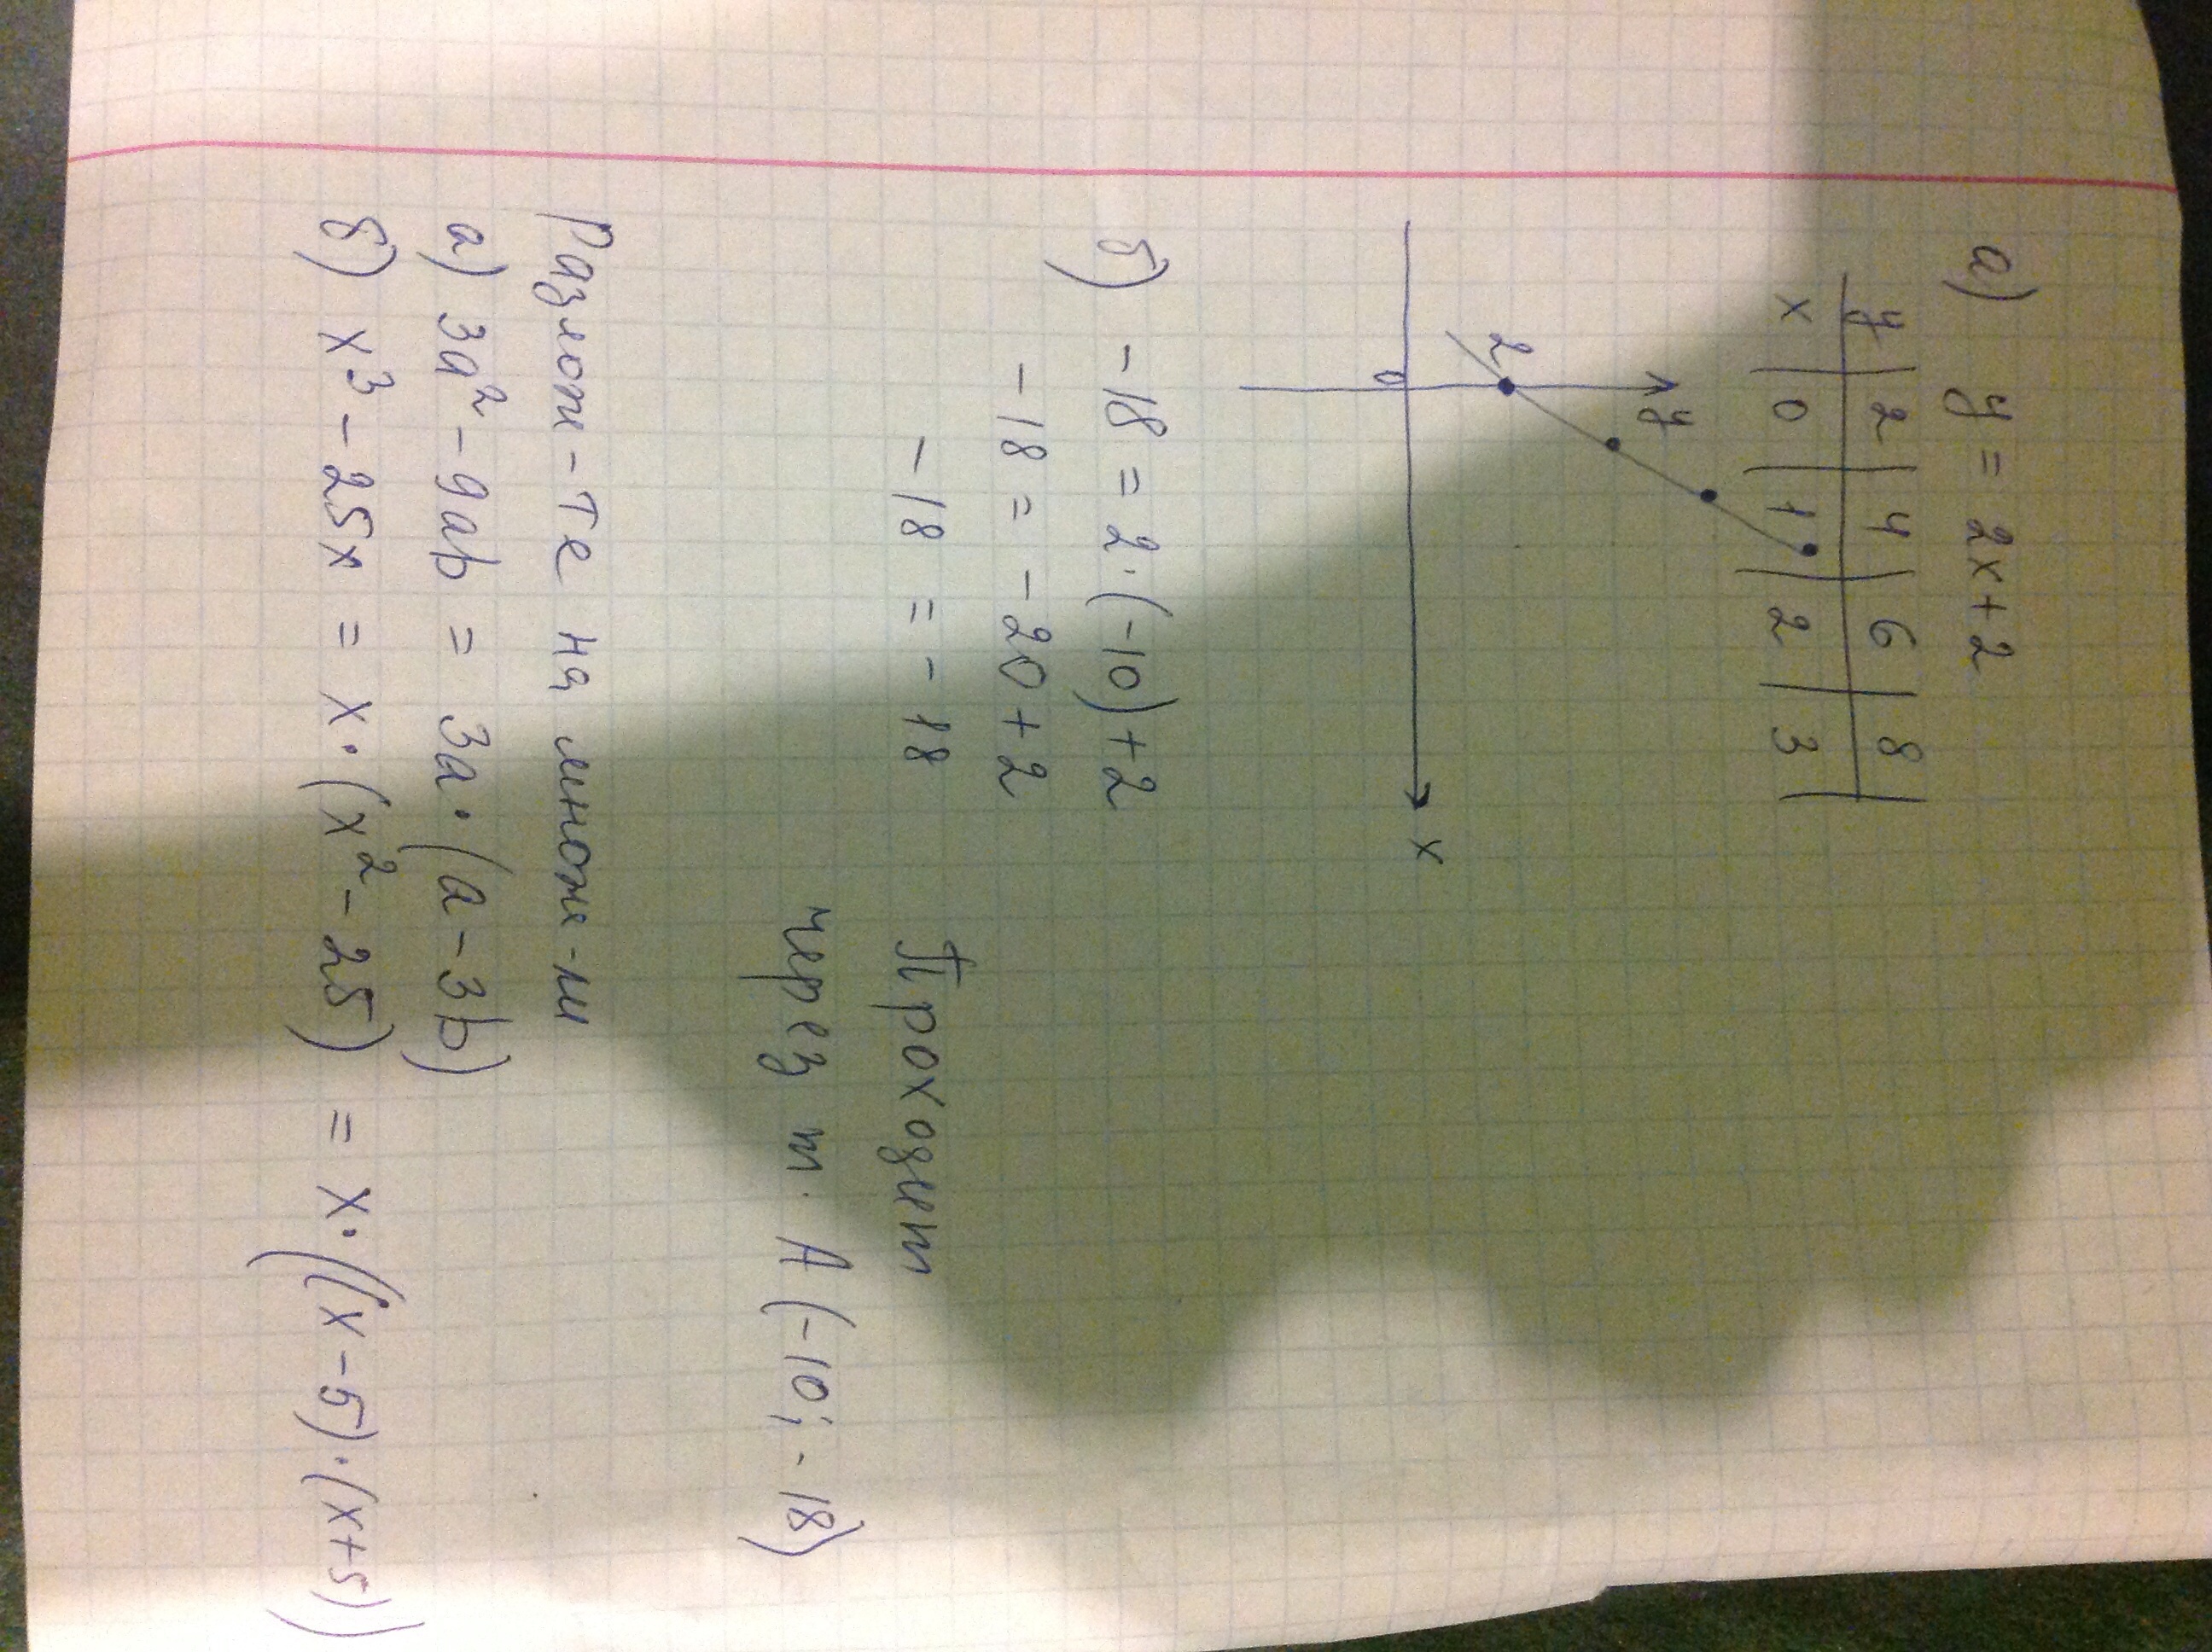 а) y = 2x+2
y | 2 | 4 | 6 | 8 |
x | 0 | 1 | 2 | 3 |
y
2
0
x
б) -18 = 2·(-10)+2
-18 = -20+2
-18 = -18
Проходит
через т. A (-10; -18)
Разлож-те на множ-ли
а) 3a² - 9ab = 3a·(a-3b)
б) x³ - 25x = x·(x² - 25) = x·((x-5)·(x+5))